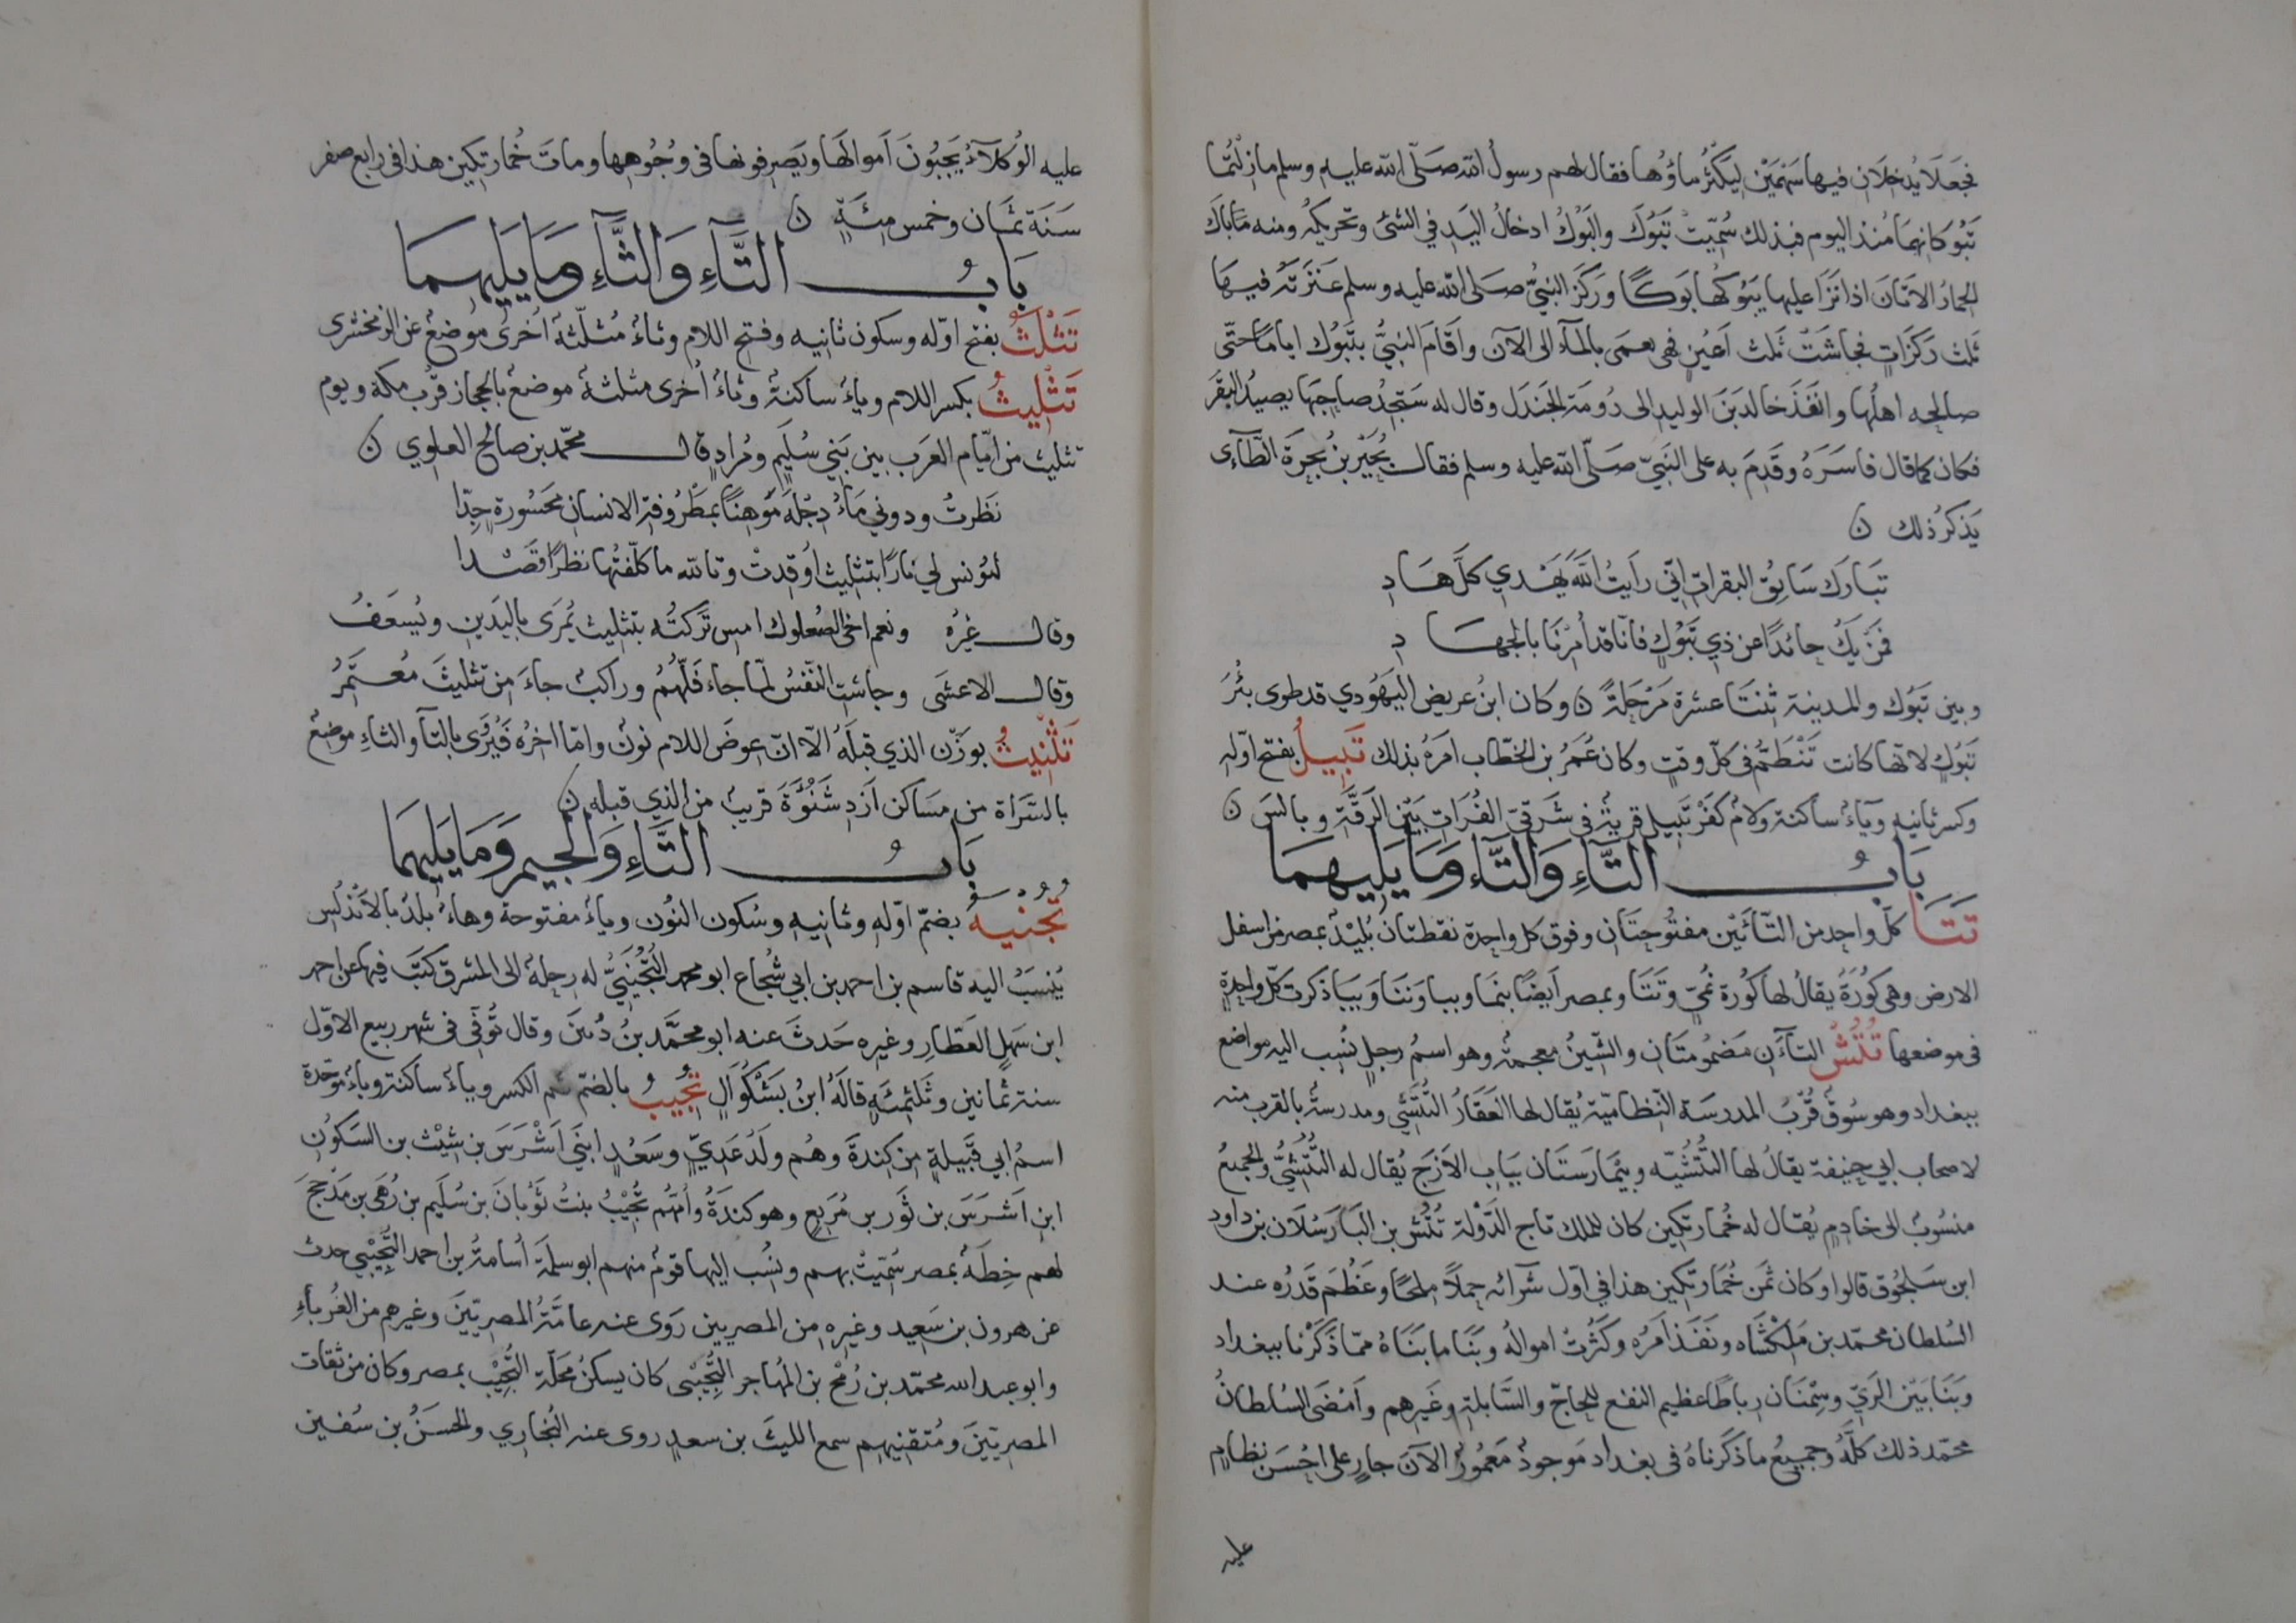 فجعلا يدخلان فيها سهمين ليكثر ماؤها فقال لهم رسول الله صلى الله عليه وسلم ما زلتما
تبوكانها منذ اليوم فبذلك سُمّيت تَبُوكَ والبَوْكُ ادخالُ اليَدِ في الشئ وتحريكه ومنه مَاباكَ
الحمارُ الاتَانَ اذا نَزَا عليها يَبُوكُها بَوكًا وركَزَ النبيُّ صلى الله عليه وسلم عَنَزَتَهُ فيهَا
ثلث رَكَزَاتٍ فجاشَتْ ثلث اَعيُنٍ فهى تهمى بالمآء الى الآن واَقَامَ النبيُّ بتَبُوك اياماً حتّى
صالحه اهلُها وانفَذَ خالدبَنَ الوليدِ الى دُومَةِ الجَندَل وقال له سَتَجِدُ صاحِبَهَا يصيدُ البقَرَ
فكان كما قال فاسَرَهُ وقَدِمَ به على النَبيّ صَلّى الله عليه وسلم فقال بُجَيْر بنُ بُجرَةَ الطّآءى
يَذكرُ ذلك ن
تبَارَك سَائِقُ البقراتِ اِنّى رَاَيتُ اللّٰهَ يَهدي كلَّ هَادِ
فَمَن يَكُ حائدًا عن ذي تَبُوكٍ فانّا قد اُمِرْنَا بالجهَادِ
وبين تَبوك والمدينة ثِنتَا عشرة مَرْحَلةً ن وكان ابنُ عريض اليَهُودي قد طوى بئرَ
تَبُوكٍ لانّها كانت تَنْطَمُّ فى كلّ وقتٍ وكان عُمَرُ بن الخطّاب امَرَهُ بذلك تَبِيلُ بفتح اوّله
وكسر ثانيه وياءٌ ساكنة ولامٌ كَفَرْتَبِيل قريةٌ فى شَرقىّ الفُرَاتِ بَيْن الرَقَّةِ وبالسَ ن
بَابُ التَّاءِ وَالتَّاءِ وَمَا يَلِيهمَا
تَتَا كلّ واحِد من التّائَيْن مفتُوحتَان وفوق كل واحِدة نقطتان بُلَيْدٌ بمصر من اسفل
الارض وهى كُورَةٌ يقالُ لها كُورة تُمَىّ وتَتَا وبمصر اَيضًا بنما وببا وننا وببا ذكرت كلّ واحِدةٍ
فى موضعها تُتُشُ التآآن مَضمُومتَان والشّينُ معجمةٌ وهو اسمُ رجلٍ نُسِب اليه مواضع
ببغداد وهو سُوقٌ قُرْبُ المدرسَة النّظاميّة يُقال لها العَقَارُ التُّتُشّى ومدرسةٌ بالقرب منه
لاصحاب ابى حنيفة يقالُ لها التُتُشّيه وبيْمَارَستَان ببَاب الاَزَج يُقال له التُّتُشِّىُّ والجميعُ
منسُوبٌ الى خادِمٍ يُقال له خُمارتكين كان للملك تاج الدَوْلة تُتُش بن الب ارَسْلَان بن داود
ابن سَلجُوق قالوا وكان ثمن خُمَارتكين هذا في اوّل شرائه حِملًا مِلحًا وعَظُمَ قَدرُه عند
السُلطان محمّد بن مَلكشَاه ونَفَذ اَمرُه وكَثُرتُ اموالُه وبَنَا ما بَنَاهُ ممّا ذَكَرْنا ببغداد
وبَنَا بَيْن الرَيّ وسِمْنَان رِباطًا عظيم النفع للحاجّ والسَّابلة وغَيرهم واَمْضَى السُلطانُ
محمّد ذلك كلّهُ وجميعُ ما ذكَرناهُ فى بغداد مَوجودٌ مَعمُورٌ الآن جارٍ على احْسَن نظامٍ
عليه
عليه الوُكلآءُ يَجْبُونَ اَموالَها ويَصرفونها فى وُجُوهها وماتَ خُمارتكين هذا فى رابع صفر
سَنَة ثمَان وخمس مِئَةٍ ن
بَابُ التَّآءِ وَالثَّآءِ وَمَا يَلِيهمَا
تَثْلَثُ بفتح اوّله وسكون ثانيه وفتح اللام وثاءٌ مُثلّثةٌ اُخرىٰ مَوضعٌ عن الزمخشرى
تَثْلِيثُ بكسر اللام وياءٌ ساكنةٌ وثاءٌ اُخرى مثلثةٌ موضعٌ بالحجاز قُرْب مكة ويوم
تثليث من ايّام العَرَب بين بَني سُلَيمٍ ومُرادٍ قال محمّد بن صالح العلوي ن
نَظَرتُ ودوني مَاءُ دِجْلَة مَوهِناً بمَطْرُوفة الانسانِ محَسُورةٍ جِدّا
لتُونسِ لي نارًا بتثليث اُوقِدتْ وتالله ما كلّفتُها نظرًا قَصْدا
وقال غيرُهُ ونعم اخى الصُعلوك امسِ تَرَكتُه بتثليث يُمْرَى باليَدَين ويُسعَفُ
وقال الاعشَى وجاشتِ النَفْسُ لمّا جاء فَلّهُمُ وراكبٌ جاءَ من تثليثَ مُعتَمِرُ
تَثْنِيثُ بوَزْن الذي قبلَهُ الّا انّ عوضَ اللام نونٌ وامّا اخرُهُ فَيُرْوَى بالتآءِ والثاءِ موضِعٌ
بالسّرَاة من مسَاكن اَزدِ شَنُوَّةَ قريبٌ من الذي قبله ن
بَابُ التَّاءِ وَالجيم وَمَا يَلِيهمَا
تُجُنْيَهُ بضمّ اوّلهِ وثانيهِ وسُكون النُون وياءٌ مفتوحة وهاءٌ بلدٌ بالاَنْدَلُس
يُنسَبُ اليه قاسم بن احمد بن ابي شُجاع ابو محمد التُّجُنْيَىُّ له رِحلةٌ الى المشرق كَتبَ فيها عن احمد
ابن سَهلٍ العَطّارِ وغيره حَدثَ عنه ابو محمَّد بنُ دُنينَ وقال تُوفّى فى شهر ربيع الاوّل
سنة ثمانين وثلثمئةٍ قالَهُ ابنُ بَشكُوَالِ تُجِيبُ بالضمّ ثم الكسر وياءٌ ساكنة وباءٌ موحّدة
اسمُ ابي قَبِيلةٍ من كِندةَ وهُم ولَدُ عَدِيٍّ وسَعْدٍ ابنَي اَشْرَسَ بن شبيْث بن السَكُونِ
ابنِ اَشرَسَ بن ثَور بن مُرَبِعٍ وهو كندَةُ واُمُّهُم تُجِيْبُ بنتُ ثَوُبانَ بن سُلَيم بن رُهَى بن مَذحِجَ
لهم خِطَةٌ بمصر سُمّيتْ بهم ونُسِب اليها قومٌ منهم ابو سلمَة اُسامةُ بن احمد التُّجِيْبى حدث
عن هرون بن سَعِيد وغيرهِ من المصريين رَوَى عنه عامّةُ المصريّينَ وغيرهم من الغُرباءِ
وابو عبد الله محمّد بن رُمْح بن المُهاجر التُّجِيْبى كان يسكنُ مَحَلّة التُّجِيْب بمصر وكان من ثقات
المصريّينَ ومُتقنِيهم سمع الليثَ بن سعدٍ روى عنه البُخاري والحسَنُ بن سُفين